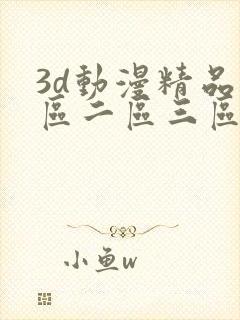 3d動漫精品
區二區三區
小鱼w